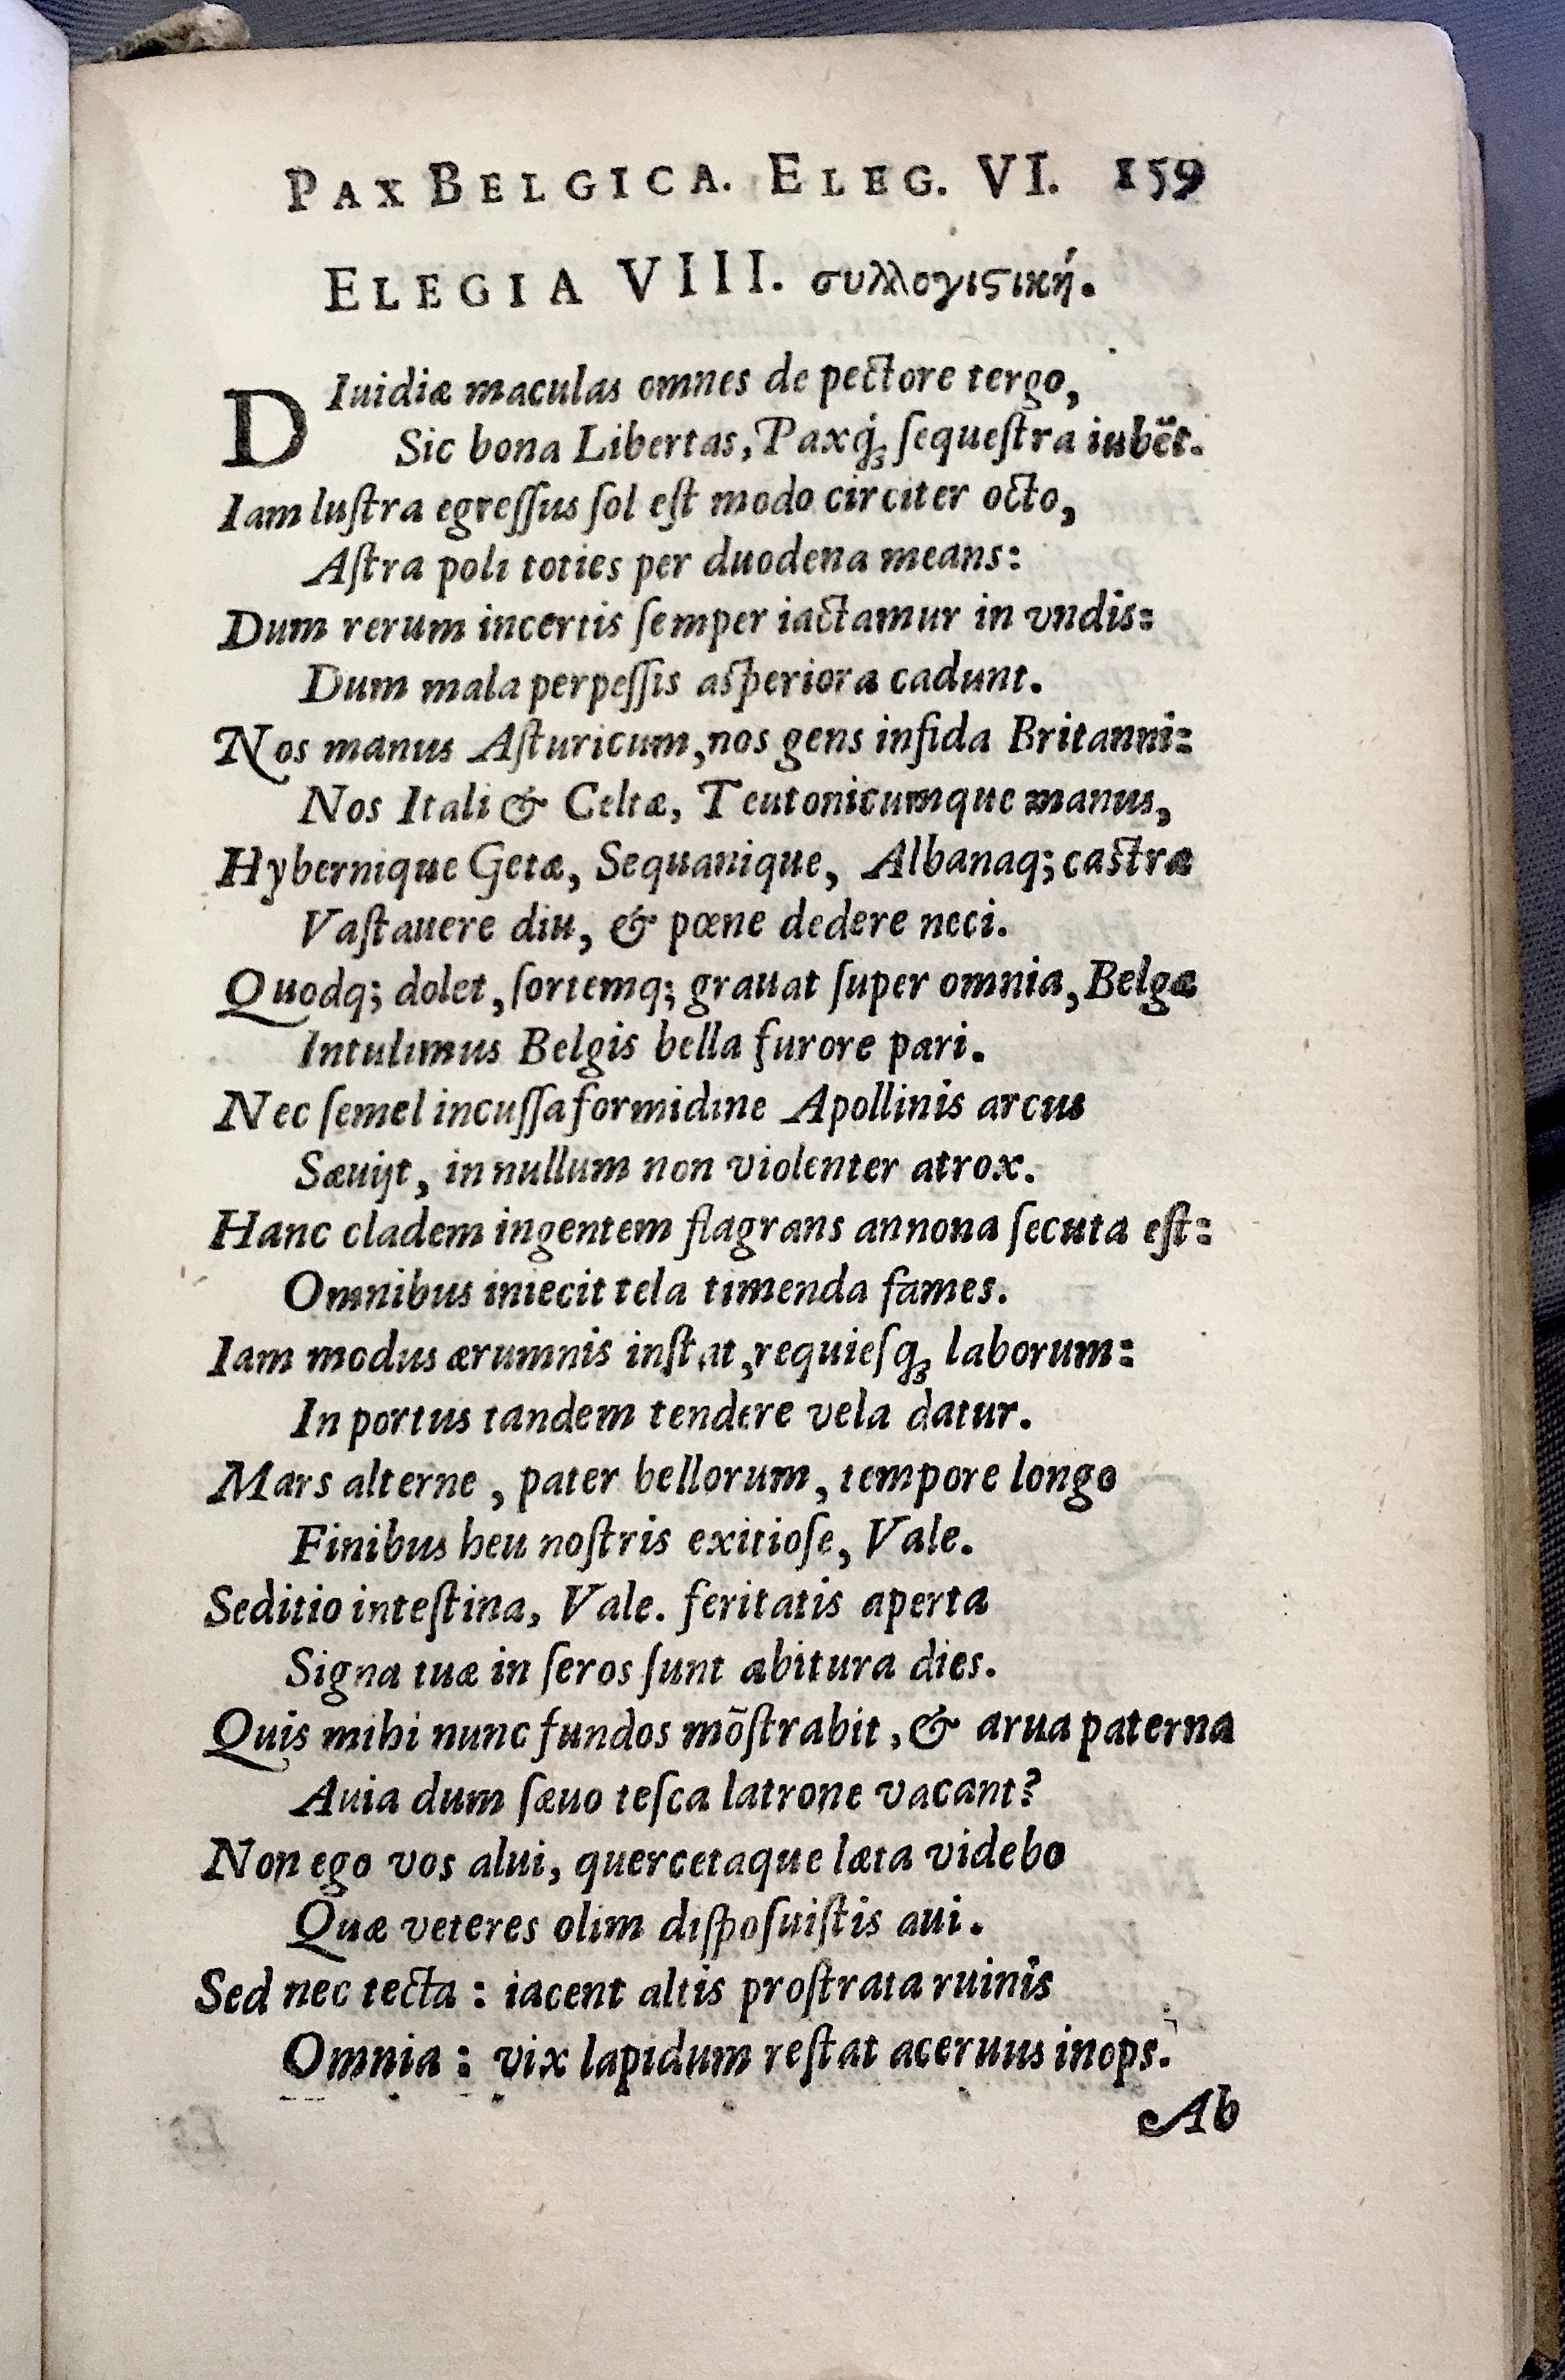 PAX BELGICA. ELEG. VI. 159
ELEGIA VIII. συλλογιϛική.
DIuidiæ maculas omnes de pectore tergo,
Sic bona Libertas, Paxq́; ſequeſtra iubẽt.
Iam luſtra egreſſus ſol eſt modo circiter octo,
Aſtra poli toties per duodena means:
Dum rerum incertis ſemper iactamur in vndis:
Dum mala perpeſſis aſperiora cadunt.
Nos manus Aſturicum, nos gens infida Britanni:
Nos Itali & Celtæ, Teutonicumque manus,
Hybernique Getæ, Sequanique, Albanaq; caſtra
Vaſtauere diu, & pœne dedere neci.
Quodq; dolet, ſortemq; grauat ſuper omnia, Belgæ
Intulimus Belgis bella furore pari.
Nec ſemel incuſſa formidine Apollinis arcus
Sæuijt, in nullum non violenter atrox.
Hanc cladem ingentem flagrans annona ſecuta eſt:
Omnibus iniecit tela timenda fames.
Iam modus ærumnis inſtat, requieſq; laborum:
In portus tandem tendere vela datur.
Mars alterne, pater bellorum, tempore longo
Finibus heu noſtris exitioſe, Vale.
Seditio inteſtina, Vale. feritatis aperta
Signa tuæ in ſeros ſunt abitura dies.
Quis mihi nunc fundos mõſtrabit, & arua paterna
Auia dum ſæuo teſca latrone vacant?
Non ego vos alui, quercetaque læta videbo
Quæ veteres olim diſpoſuiſtis aui.
Sed nec tecta: iacent altis proſtrata ruinis
Omnia: vix lapidum reſtat aceruus inops.
Ab